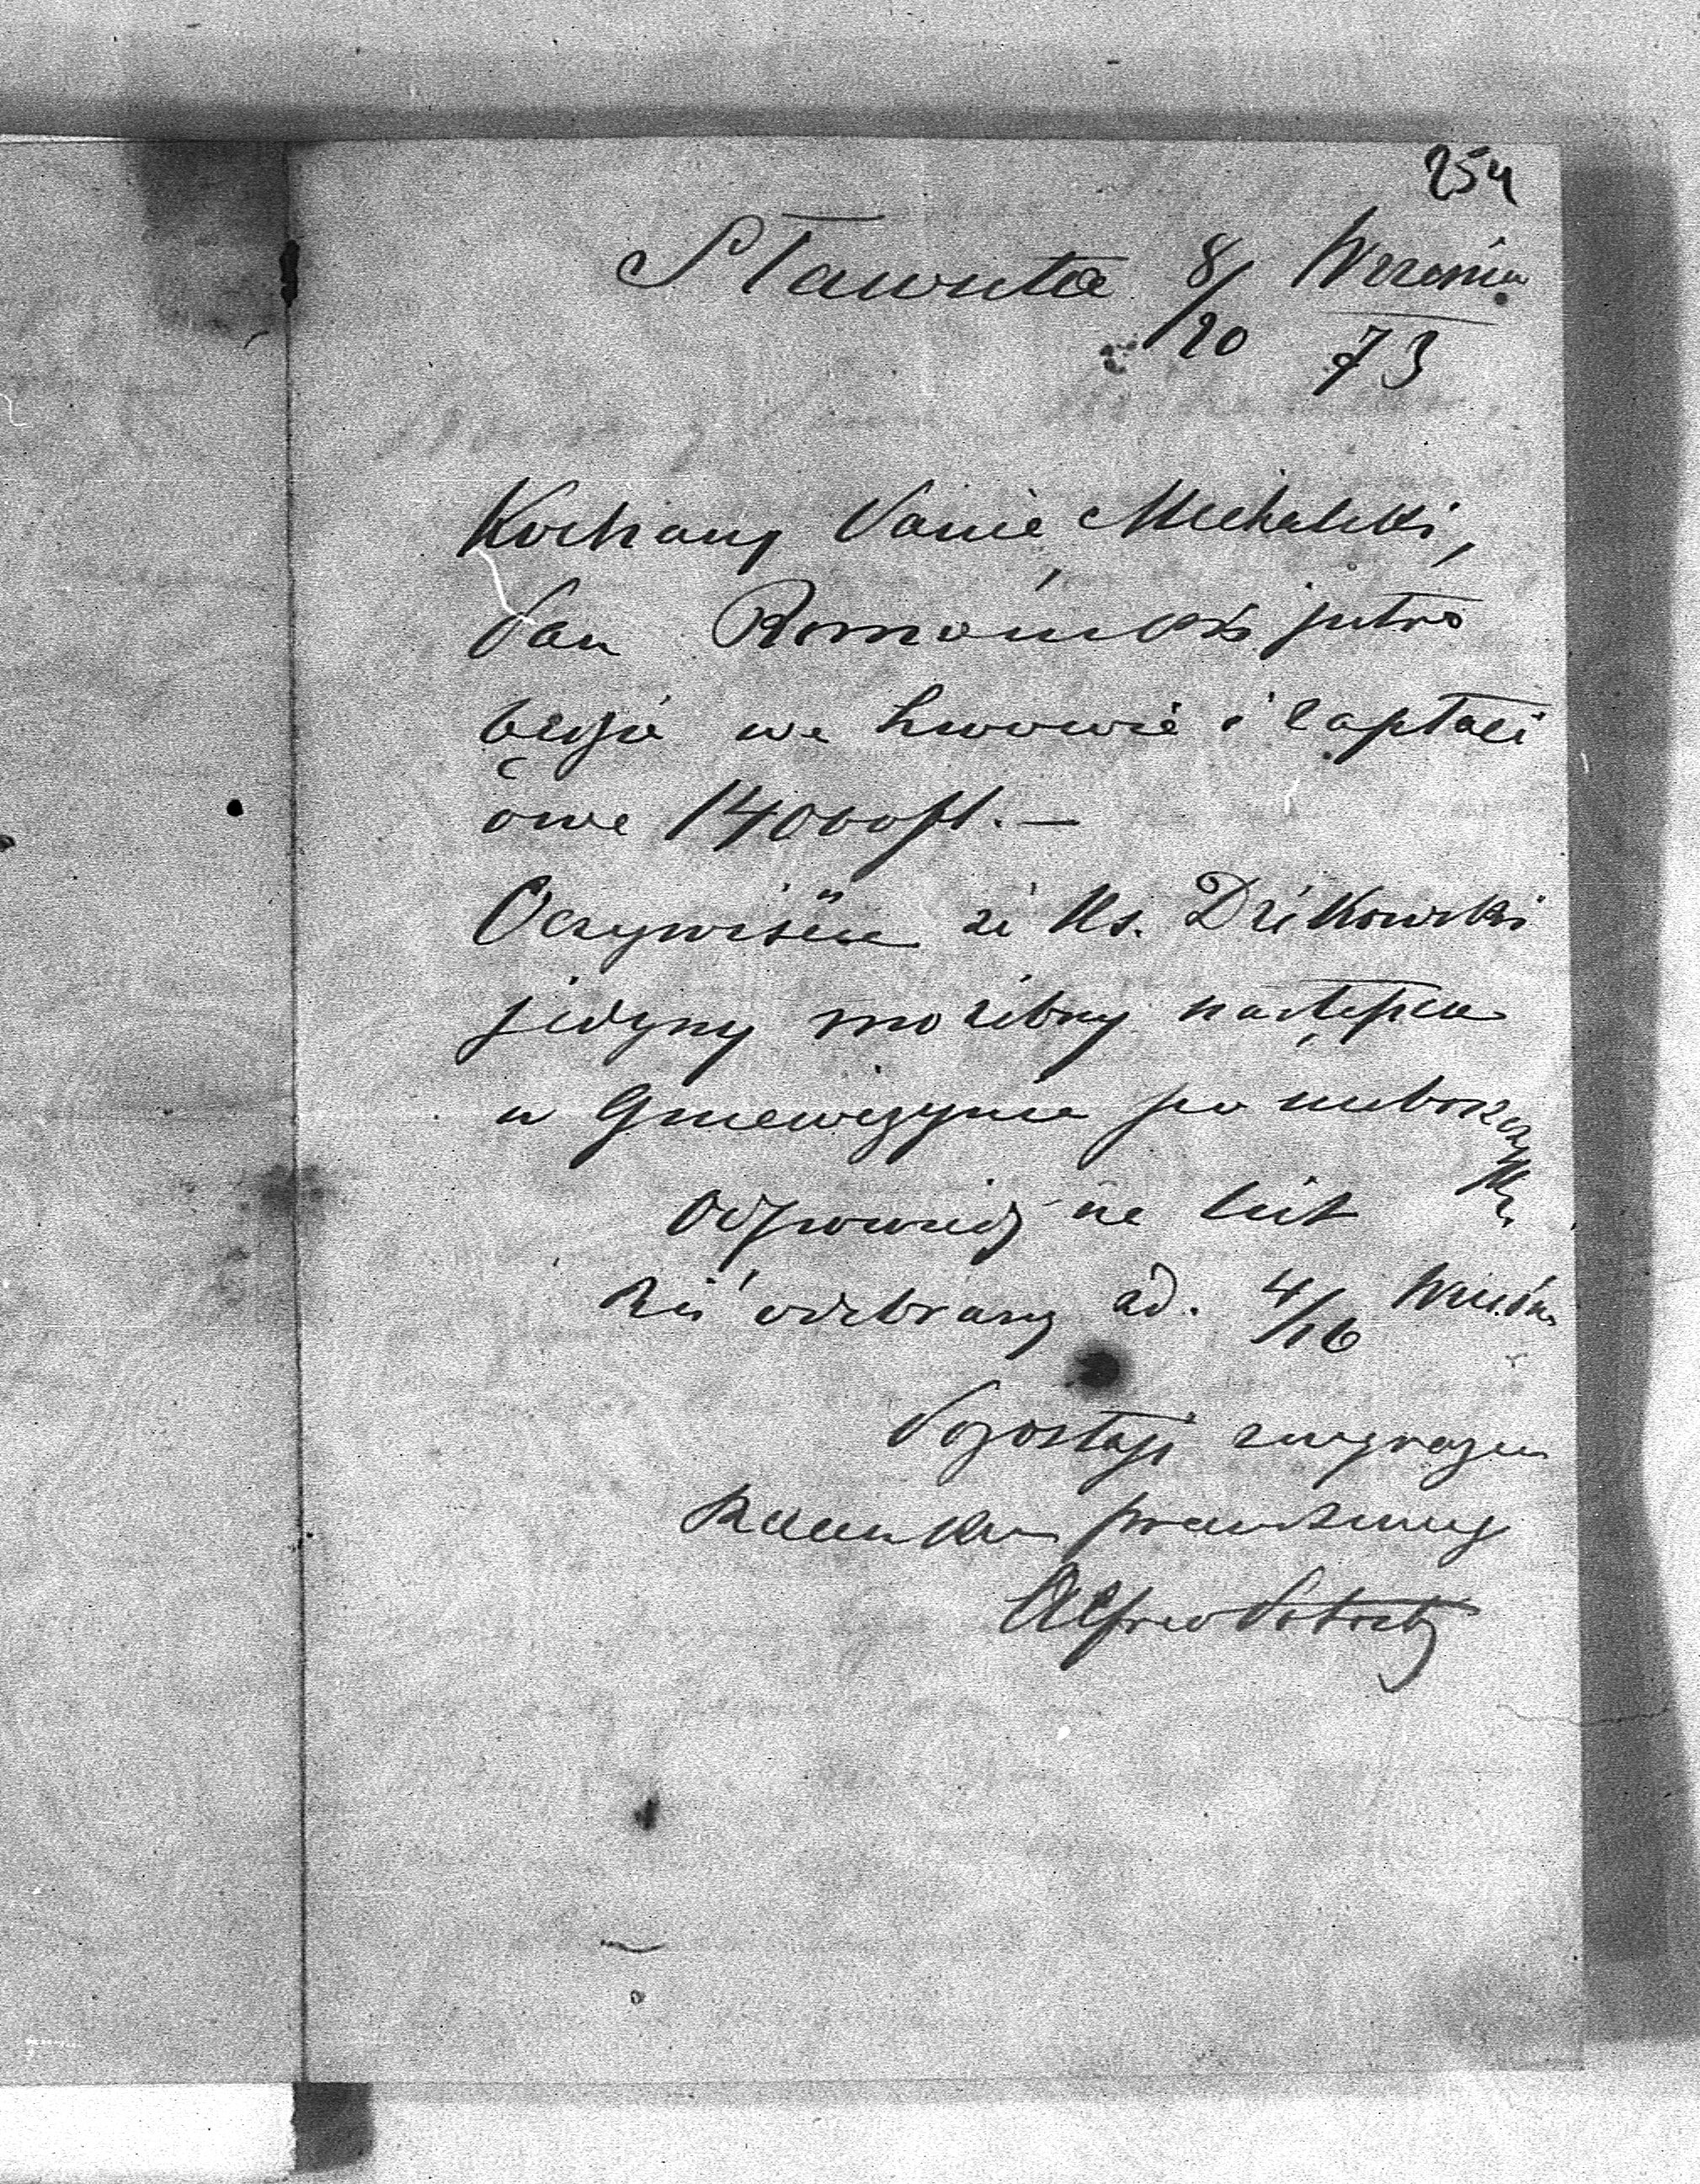 254
Sławuta 8/20 Września
73
Kochany Panie Michalski,
Pan Romański jutro
będzie we Lwowie i zapłaci
owe 14000 fl. —
Oczywiście że Ks. Dzikowski
jedyny możebny następca
w Gniewczynie po nieboszczyku
Odpowiedź na list
dziś odebrany dd. 4/16 Wrześn
Pozostaję z wyrazem
szacunku prawdziwego
Alfred Potocki